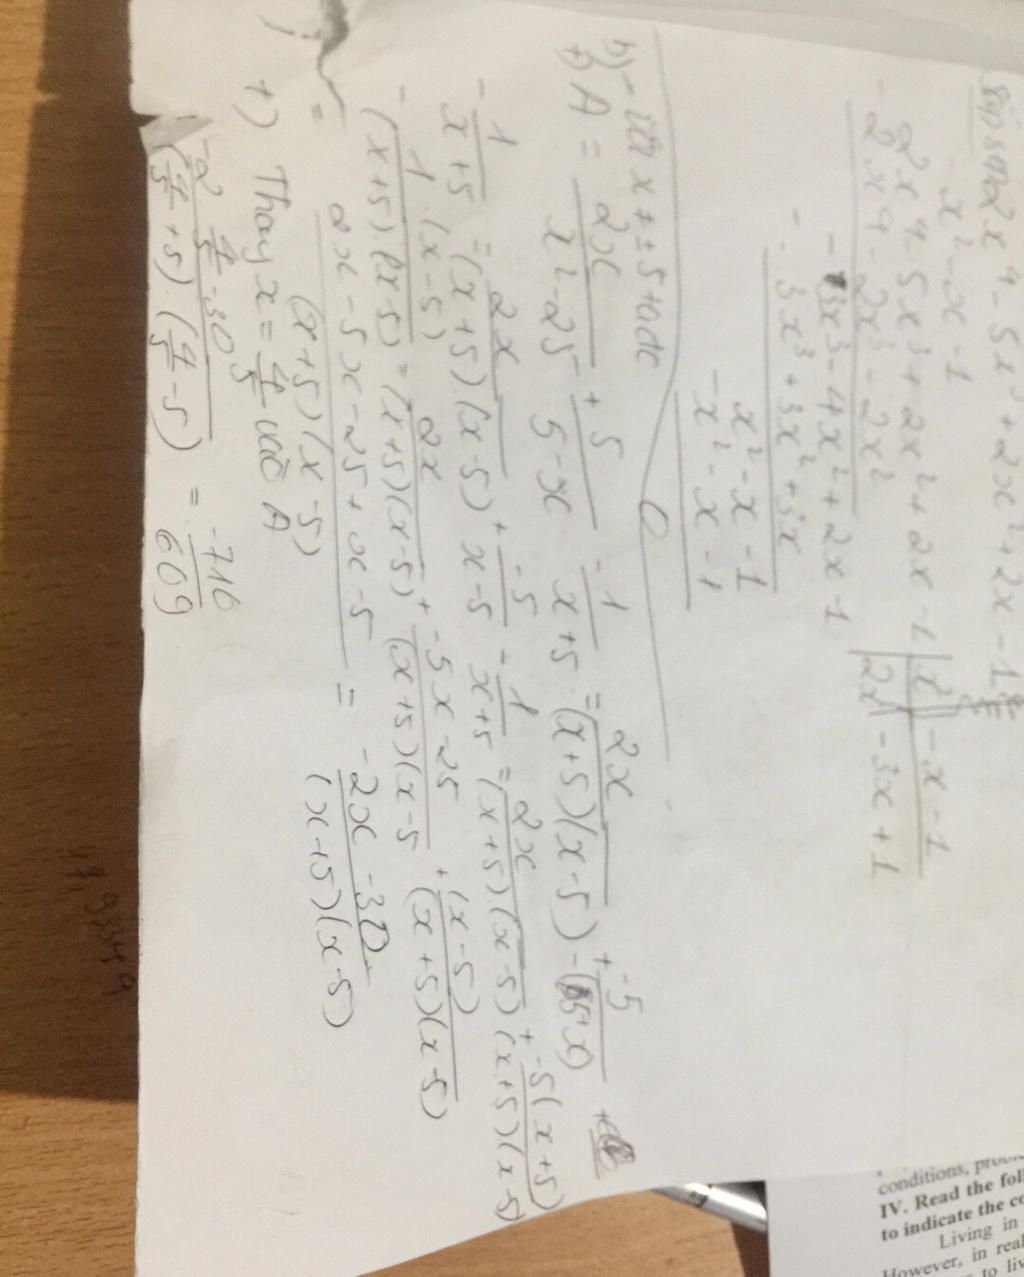 2x⁴ - 5x³ + 2x² + 2x - 1
x² - x - 1
2x⁴ - 5x³ + 2x² + 2x - 1 | x² - x - 1
2x⁴ - 2x³ - 2x² | 2x² - 3x + 1
- 3x³ - 4x² + 2x - 1
- 3x³ + 3x² + 3x
x² - x - 1
x² - x - 1
0
b) x ± ± 5
+) A = 2x/(x² - 25) + 5/(5 - x) - 1/(x + 5) = 2x/((x + 5)(x - 5)) + -5/-(5 + x)
- 1/(x + 5) = 2x/((x + 5).(x - 5)) + -5/(x - 5) - 1/(x + 5) = 2x/((x + 5).(x - 5)) + -5(x + 5)/((x + 5)(x - 5))
- 1.(x - 5)/((x + 5).(x - 5)) = 2x/((x + 5)(x - 5)) + (-5x - 25)/((x + 5)(x - 5) + (x - 5)/((x + 5)(x - 5))
= (2x - 5x - 25 + x - 5)/((x + 5)(x - 5)) = (-2x - 30)/((x + 5)(x - 5))
+) Thay x = 4/5 vào A
(-2 4/5 - 30)/((4/5 + 5).(4/5 - 5)) = -716/609
conditions,
IV. Read the
to indicate the
Living in
However, in
to